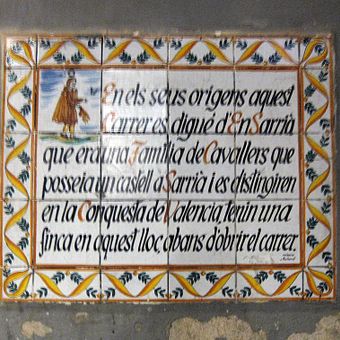 En els seus orígens aquest
Carrer es digué d'En Sarrià,
que era una Família de Cavallers que
posseia un castell a Sarrià i es distingiren
en la Conquesta de Valencia, tenin una
finca en aquest lloc, abans d'obrir el carrer.